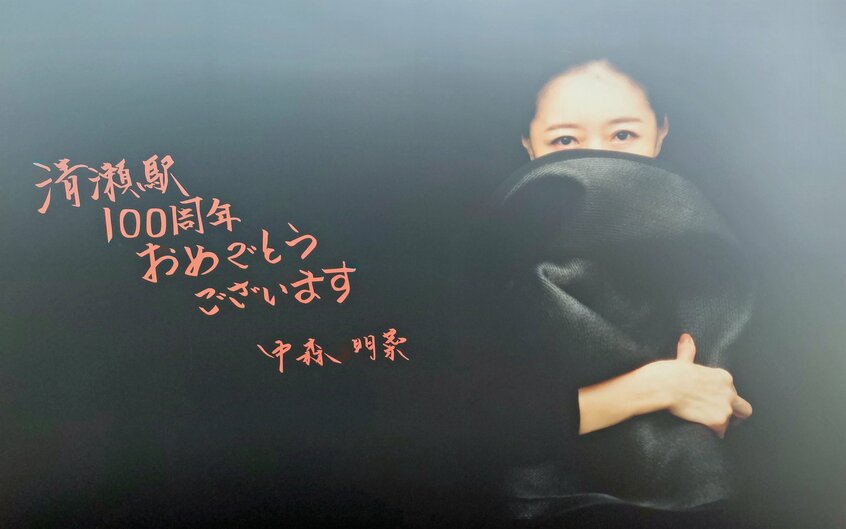 清瀬駅
100周年
おめでとう
ございます
中森明菜